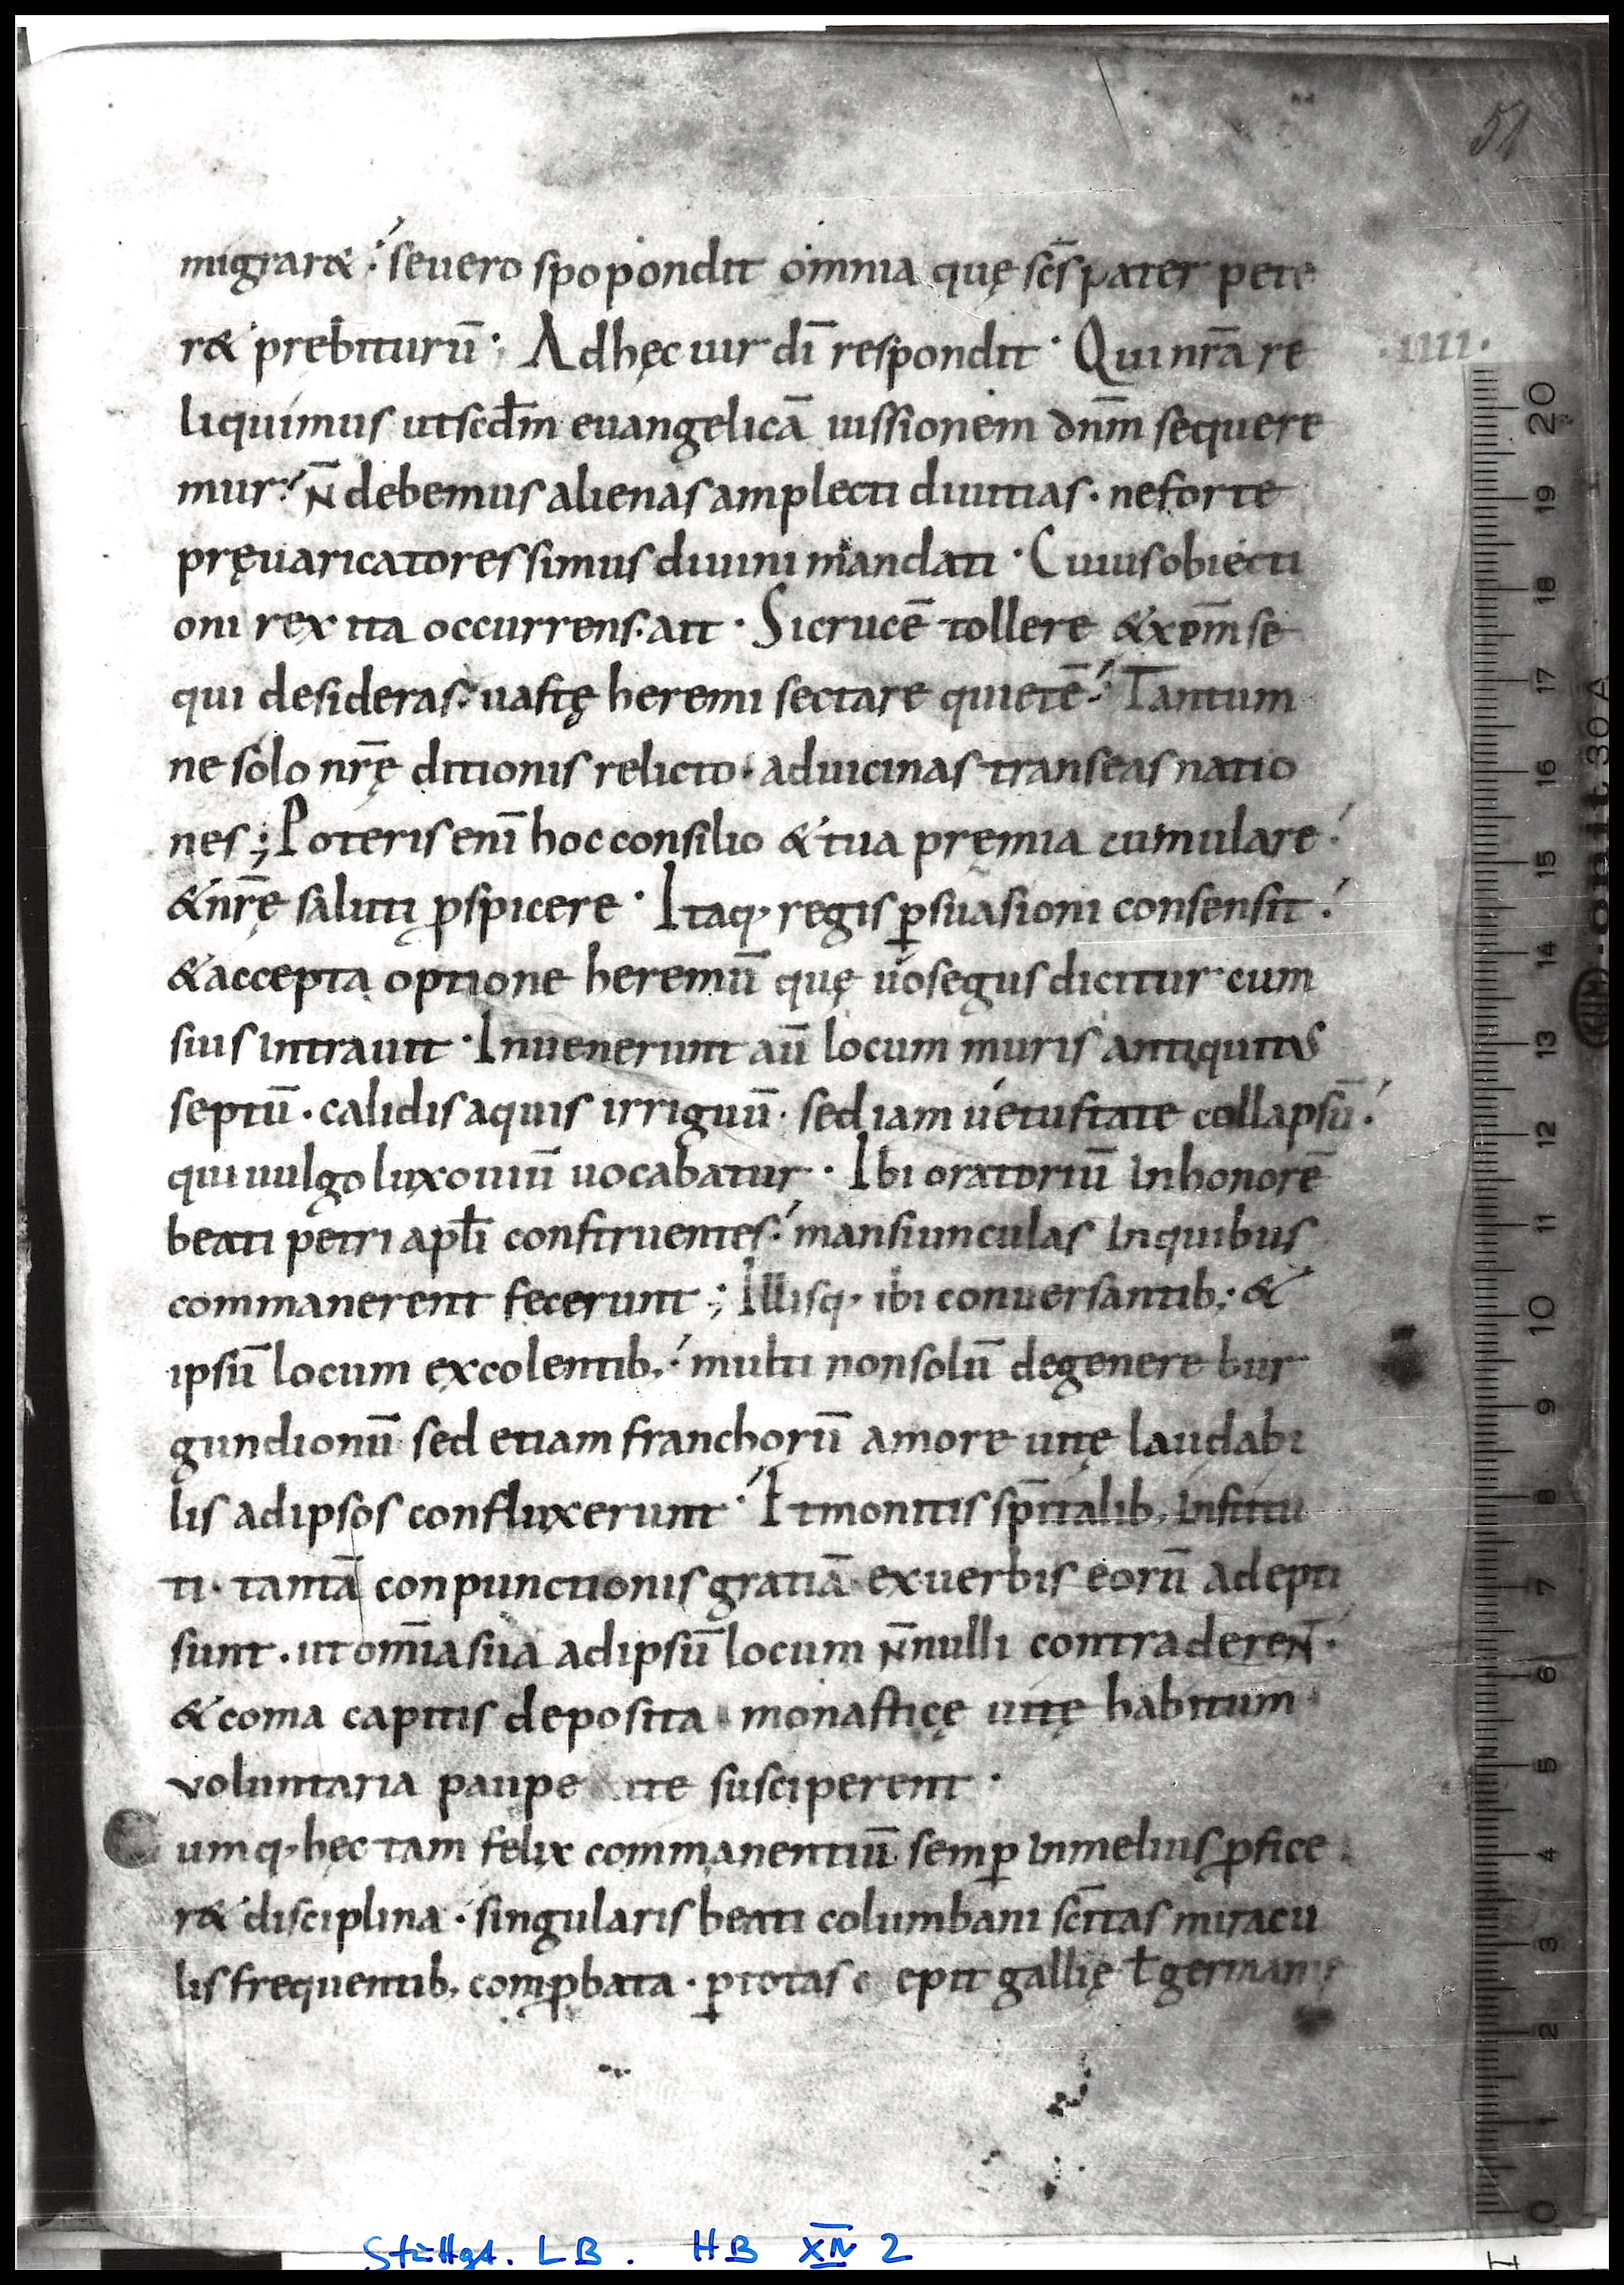 51
migrar&. se uero spopondit omnia quę sc̄s pater pete
r& prebiturū; Ad hęc uir dī respondit. Qui nr̄a re
.IIII.
liquimus ut scdm̄ euangelicā iussionem dn̄m sequere
mur. N̄ debemus alienas amplecti diuitias. ne forte
pręuaricatores simus diuini mandati. Cuius obiecti
oni rex ita occurrens. ait. Si crucē tollere & xp̄m se
qui desideras. uastę heremi sectare quietē. Tantum
ne solo nr̄ę ditionis relicto. ad uicinas transeas natio
nes; Poteris enī hoc consilio & tua pręmia cumulare.
& nr̄ę saluti ꝓspicere. Itaq; regis ꝑsuasioni consensit.
& accepta optione heremū quę uosegus dicitur cum
suis intrauit. Inuenerunt aū locum muris antiquitus
septū. calidis aquis irriguū. sed iam uetustate collapsū.
qui uulgo luxouiū uocabatur. Ibi oratoriū in honorē
beati petri apłi construentes. mansiunculas in quibus
commanerent fecerunt; Illisq; ibi conuersantib; &
ipsū locum excolentib; multi non solū de genere bur
gundionū sed etiam franchorū amore uitę laudabi
lis ad ipsos confluxerunt. Et monitis sp̄italib; institu
ti. tantā conpunctionis gratiā ex uerbis eorū adepti
sunt. ut om̄ia sua ad ipsū locum n̄nulli contraderent.
& coma capitis deposita. monasticę uitę habitum
voluntaria paupe te susciperent.
Cumq; hęc tam felix commanentiū semꝑ in melius ꝓfice
r& disciplina. singularis beati columbani sc̄itas miracu
lis frequentib; comꝓbata. ꝑ totas c epit gallię ł germanię
Stuttgt. LB. HB XIV 2
20
19
18
17
16
15
14
13
12
11
10
9
8
7
6
5
4
3
2
1
0